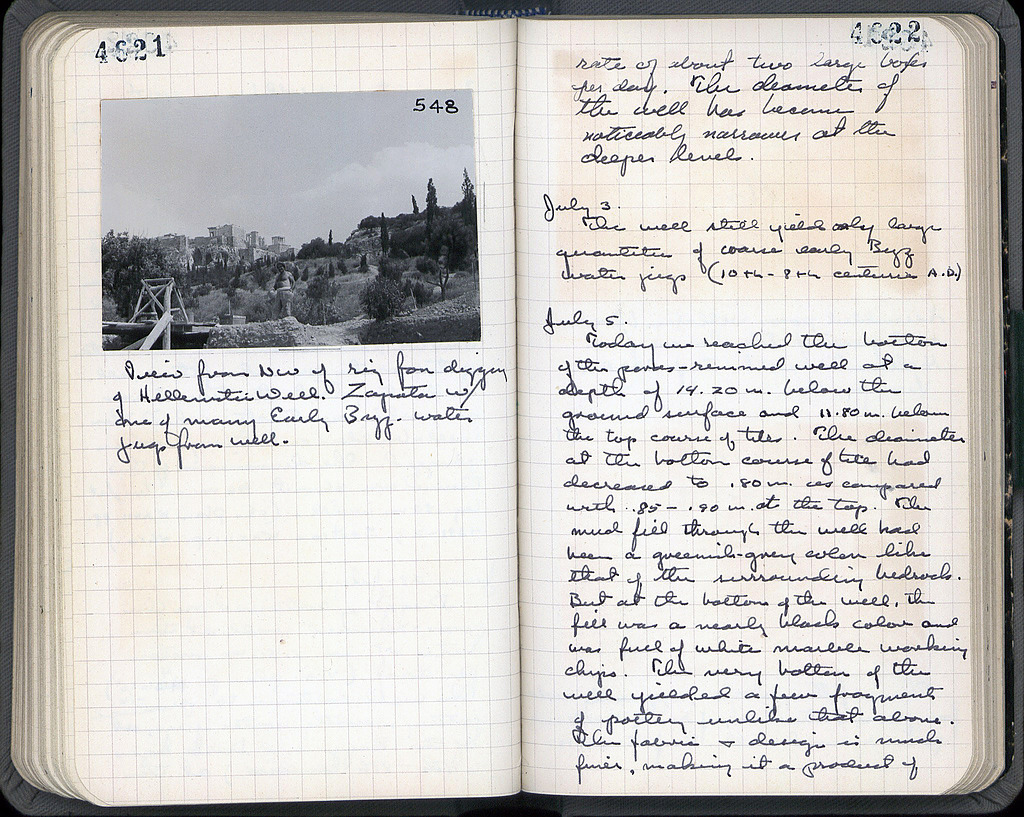 4621
548
View from NW of rig for digging
of Hellenistic Well. Zapata w/
one of many Early Byz. water
jugs from well.
4622
rate of about two large boxes
per day. The diameter of
the well has become
noticeably narrower at the
deeper levels.
July 3.
The well still yields only large
quantities of coarse early Byz
water jugs (10th - 8th centuries A.D.)
July 5.
Today we reached the bottom
of the well at a
depth of 14.20 m. below the
ground surface and 11.80 m. below
the top course of tiles. The diameter
at the bottom course of tile had
decreased to .80 m. as compared
with .85 - .90 m. at the top. The
mud fill through the well had
been a greenish-grey color like
that of the surrounding bedrock.
But at the bottom of the well, the
fill was a nearly black color and
was full of white marble working
chips. The very bottom of the
well yielded a few fragments
of pottery unlike that above.
The fabric + design is much
finer, making it a product of